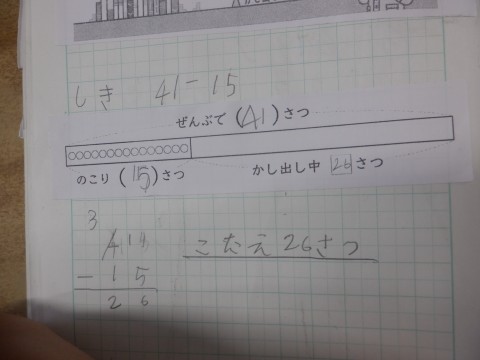 しき 41-15
ぜんぶで(41)さつ
○○○○○○○○○○○○○○○
のこり(15)さつ かし出し中 26さつ
3
4 11
-15
26
こたえ26さつ